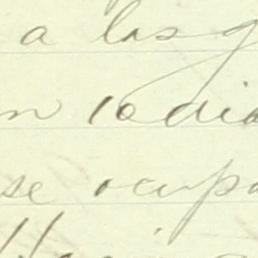 a las 9
n 10 dia
se ocupa